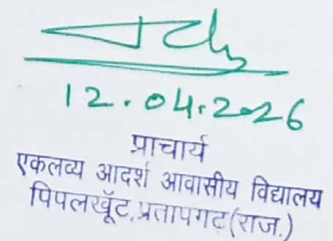 12.04.2026
प्राचार्य
एकलव्य आदर्श आवासीय विद्यालय
पिपलखूँट,प्रतापगढ़(राज.)